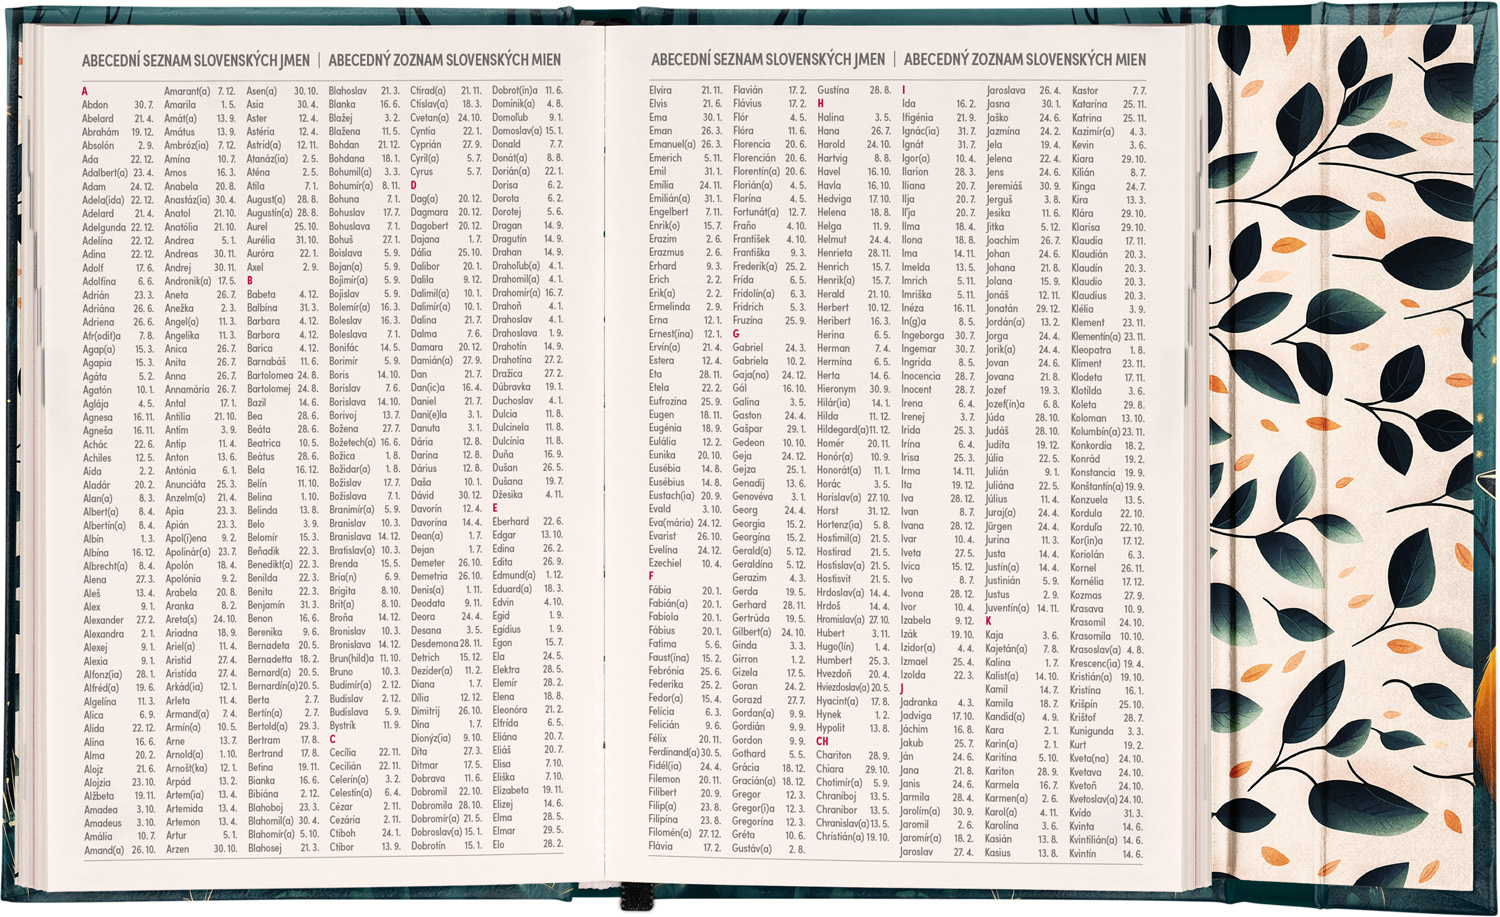 ABECEDNÍ SEZNAM SLOVENSKÝCH JMEN | ABECEDNÝ ZOZNAM SLOVENSKÝCH MIEN
A
Abdon 30. 7.
Abelard 21. 4.
Abrahám 19. 12.
Absolón 2. 9.
Ada 22. 12.
Adalbert(a) 23. 4.
Adam 24. 12.
Adela(ida) 22. 12.
Adelard 21. 4.
Adelgunda 22. 12.
Adelína 22. 12.
Adina 22. 12.
Adolf 17. 6.
Adolfína 6. 6.
Adrián 23. 3.
Adriána 26. 6.
Adriena 26. 6.
Afr(odit)a 7. 8.
Agap(a) 15. 3.
Agapia 15. 3.
Agáta 5. 2.
Agatón 10. 1.
Aglája 4. 5.
Agnesa 16. 11.
Agneša 16. 11.
Achác 22. 6.
Achiles 12. 5.
Aida 2. 2.
Aladár 20. 2.
Alan(a) 8. 3.
Albert(a) 8. 4.
Albertín(a) 8. 4.
Albín 1. 3.
Albína 16. 12.
Albrecht(a) 8. 4.
Alena 27. 3.
Aleš 13. 4.
Alex 9. 1.
Alexander 27. 2.
Alexandra 2. 1.
Alexej 9. 1.
Alexia 9. 1.
Alfonz(ia) 28. 1.
Alfréd(a) 19. 6.
Algelína 11. 3.
Alica 6. 9.
Alida 22. 12.
Alina 16. 6.
Alma 20. 2.
Alojz 21. 6.
Alojzia 23. 10.
Alžbeta 19. 11.
Amadea 3. 10.
Amadeus 3. 10.
Amália 10. 7.
Amand(a) 26. 10.
Amarant(a) 7. 12.
Amarila 1. 5.
Amát(a) 13. 9.
Amátus 13. 9.
Ambróz(ia) 7. 12.
Amína 10. 7.
Amos 16. 3.
Anabela 20. 8.
Anastáz(ia) 30. 4.
Anatol 21. 10.
Anatólia 21. 10.
Andrea 5. 1.
Andreas 30. 11.
Andrej 30. 11.
Andronik(a) 17. 5.
Aneta 26. 7.
Anežka 2. 3.
Angel(a) 11. 3.
Angelika 11. 3.
Anica 26. 7.
Anita 26. 7.
Anna 26. 7.
Annamária 26. 7.
Antal 17. 1.
Antília 21. 10.
Antim 3. 9.
Antip 11. 4.
Anton 13. 6.
Antónia 6. 1.
Anunciáta 25. 3.
Anzelm(a) 21. 4.
Apia 23. 3.
Apián 23. 3.
Apol(i)ena 9. 2.
Apolinár(a) 23. 7.
Apolón 18. 4.
Apolónia 9. 2.
Arabela 20. 8.
Aranka 8. 2.
Areta(s) 24. 10.
Ariadna 18. 9.
Ariel(a) 11. 4.
Aristid 27. 4.
Aristída 27. 4.
Arkád(ia) 12. 1.
Arleta 11. 4.
Armand(a) 7. 4.
Armín(a) 10. 5.
Arne 13. 7.
Arnold(a) 1. 10.
Arnošt(ka) 12. 1.
Arpád 13. 2.
Artem(ia) 13. 4.
Artemída 13. 4.
Artemon 13. 4.
Artur 5. 1.
Arzen 30. 10.
Asen(a) 30. 10.
Asia 30. 4.
Aster 12. 4.
Astéria 12. 4.
Astrid(a) 12. 11.
Atanáz(ia) 2. 5.
Aténa 2. 5.
Atila 7. 1.
August(a) 28. 8.
Augustín(a) 28. 8.
Aurel 25. 10.
Aurélia 31. 10.
Auróra 22. 1.
Axel 2. 9.
B
Babeta 4. 12.
Balbína 31. 3.
Barbara 4. 12.
Barbora 4. 12.
Barica 4. 12.
Barnabáš 11. 6.
Bartolomea 24. 8.
Bartolomej 24. 8.
Bazil 14. 6.
Bea 28. 6.
Beáta 28. 6.
Beatrica 10. 5.
Beátus 28. 6.
Bela 16. 12.
Belín 11. 10.
Belina 1. 10.
Belinda 13. 8.
Belo 3. 9.
Belomír 15. 3.
Beňadik 22. 3.
Benedikt(a) 22. 3.
Benilda 22. 3.
Benita 22. 3.
Benjamín 31. 3.
Benon 16. 6.
Berenika 9. 6.
Bernadeta 20. 5.
Bernadetta 18. 2.
Bernard(a) 20. 5.
Bernardín(a) 20. 5.
Berta 2. 7.
Bertín(a) 2. 7.
Bertold(a) 29. 3.
Bertram 17. 8.
Bertrand 17. 8.
Betina 19. 11.
Bianka 16. 6.
Bibiána 2. 12.
Blahoboj 23. 3.
Blahomil(a) 30. 4.
Blahomír(a) 5. 10.
Blahosej 21. 3.
Blahoslav 21. 3.
Blanka 16. 6.
Blažej 3. 2.
Blažena 11. 5.
Bohdan 21. 12.
Bohdana 18. 1.
Bohumil(a) 3. 3.
Bohumír(a) 8. 11.
Bohuna 7. 1.
Bohuslav 17. 7.
Bohuslava 7. 1.
Bohuš 27. 1.
Boislava 5. 9.
Bojan(a) 5. 9.
Bojimír(a) 5. 9.
Bojislav 5. 9.
Bolemír(a) 16. 3.
Boleslav 16. 3.
Boleslava 7. 1.
Bonifác 14. 5.
Borimír 5. 9.
Boris 14. 10.
Borislav 7. 6.
Borislava 14. 10.
Borivoj 13. 7.
Božena 27. 7.
Božetech(a) 16. 6.
Božica 1. 8.
Božidar(a) 1. 8.
Božislav 17. 7.
Božislava 7. 1.
Branimír(a) 5. 9.
Branislav 10. 3.
Branislava 14. 12.
Bratislav(a) 10. 3.
Brenda 15. 5.
Bria(n) 6. 9.
Brigita 8. 10.
Brit(a) 8. 10.
Broňa 14. 12.
Bronislav 10. 3.
Bronislava 14. 12.
Brun(hild)a 11. 10.
Bruno 10. 3.
Budimír(a) 2. 12.
Budislav 2. 12.
Budislava 5. 9.
Bystrík 11. 9.
C
Cecília 22. 11.
Cecilián 22. 11.
Celerín(a) 3. 2.
Celestín(a) 6. 4.
Cézar 2. 11.
Cezária 2. 11.
Ctiboh 24. 1.
Ctibor 13. 9.
Ctirad(a) 21. 11.
Ctislav(a) 18. 3.
Cvetan(a) 24. 10.
Cyntia 22. 1.
Cyprián 27. 9.
Cyril(a) 5. 7.
Cyrus 5. 7.
D
Dag(a) 20. 12.
Dagmara 20. 12.
Dagobert 20. 12.
Dajana 1. 7.
Dália 25. 10.
Dalibor 20. 1.
Dalila 9. 12.
Dalimil(a) 10. 1.
Dalimír(a) 10. 1.
Dalina 7. 6.
Dalma 7. 6.
Damara 20. 12.
Damián(a) 27. 9.
Dan 21. 7.
Dan(ic)a 16. 4.
Daniel 21. 7.
Dani(e)la 3. 1.
Danuta 3. 1.
Dária 12. 8.
Darina 12. 8.
Dárius 12. 8.
Daša 10. 1.
Dávid 30. 12.
Davorín 12. 4.
Davorína 14. 4.
Dean(a) 1. 7.
Dejan 1. 7.
Demeter 26. 10.
Demetria 26. 10.
Denis(a) 1. 11.
Deodata 9. 11.
Deora 24. 4.
Desana 3. 5.
Desdemona 28. 11.
Detrich 15. 12.
Dezider(a) 11. 2.
Diana 1. 7.
Dília 12. 12.
Dimitrij 26. 10.
Dina 1. 7.
Dionýz(ia) 9. 10.
Dita 27. 3.
Ditmar 17. 5.
Dobrava 11. 6.
Dobromil 22. 10.
Dobromila 28. 10.
Dobromír(a) 21. 5.
Dobroslav(a) 15. 1.
Dobrotín 15. 1.
Dobrot(ín)a 11. 6.
Dominik(a) 4. 8.
Domoľub 9. 1.
Domoslav(a) 15. 1.
Donald 7. 7.
Donát(a) 8. 8.
Dorián(a) 22. 1.
Dorisa 6. 2.
Dorota 6. 2.
Dorotej 5. 6.
Dragan 14. 9.
Dragutín 14. 9.
Drahan 14. 9.
Drahoľub(a) 4. 1.
Drahomil(a) 4. 1.
Drahomír(a) 16. 7.
Drahoň 4. 1.
Drahoslav 4. 1.
Drahoslava 1. 9.
Drahotín 14. 9.
Drahotína 27. 2.
Dražica 27. 2.
Dúbravka 19. 1.
Duchoslav 4. 1.
Dulcia 11. 8.
Dulcinela 11. 8.
Dulcínia 11. 8.
Duňa 16. 9.
Dušan 26. 5.
Dušana 19. 7.
Džesika 4. 11.
E
Eberhard 22. 6.
Edgar 13. 10.
Edina 26. 2.
Edita 26. 9.
Edmund(a) 1. 12.
Eduard(a) 18. 3.
Edvin 4. 10.
Egid 1. 9.
Egídius 1. 9.
Egon 15. 7.
Ela 24. 5.
Elektra 28. 5.
Elemír 28. 2.
Elena 18. 8.
Eleonóra 21. 2.
Elfrída 6. 5.
Eliána 20. 7.
Eliáš 20. 7.
Elisa 7. 10.
Eliška 7. 10.
Elizabeta 19. 11.
Elizej 14. 6.
Elma 28. 5.
Elmar 29. 5.
Elo 28. 2.
ABECEDNÍ SEZNAM SLOVENSKÝCH JMEN | ABECEDNÝ ZOZNAM SLOVENSKÝCH MIEN
Elvíra 21. 11.
Elvis 21. 6.
Ema 30. 1.
Eman 26. 3.
Emanuel(a) 26. 3.
Emerich 5. 11.
Emil 31. 1.
Emília 24. 11.
Emilián(a) 31. 1.
Engelbert 7. 11.
Enrik(o) 15. 7.
Erazim 2. 6.
Erazmus 2. 6.
Erhard 9. 3.
Erich 2. 2.
Erik(a) 2. 2.
Ermelinda 2. 9.
Erna 12. 1.
Ernest(ína) 12. 1.
Ervín(a) 21. 4.
Estera 12. 4.
Eta 28. 11.
Etela 22. 2.
Eufrozína 25. 9.
Eugen 18. 11.
Eugénia 18. 9.
Eulália 12. 2.
Eunika 20. 10.
Eusébia 14. 8.
Eusébius 14. 8.
Eustach(ia) 20. 9.
Evald 3. 10.
Eva(mária) 24. 12.
Evarist 26. 10.
Evelína 24. 12.
Ezechiel 10. 4.
F
Fábia 20. 1.
Fabián(a) 20. 1.
Fabiola 20. 1.
Fábius 20. 1.
Fatima 5. 6.
Faust(ína) 15. 2.
Febrónia 25. 6.
Federika 25. 2.
Fedor(a) 15. 4.
Felícia 6. 3.
Felicián 9. 6.
Félix 20. 11.
Ferdinand(a) 30. 5.
Fidél(ia) 24. 4.
Filemon 20. 11.
Filibert 20. 9.
Filip(a) 23. 8.
Filipína 23. 8.
Filomén(a) 27. 12.
Flávia 17. 2.
Flavián 17. 2.
Flávius 17. 2.
Flór 4. 5.
Flóra 11. 6.
Florencia 20. 6.
Florencián 20. 6.
Florentín(a) 20. 6.
Florián(a) 4. 5.
Florína 4. 5.
Fortunát(a) 12. 7.
Fraňo 4. 10.
František 4. 10.
Františka 9. 3.
Frederik(a) 25. 2.
Frída 6. 5.
Fridolín(a) 6. 3.
Fridrich 5. 3.
Fruzína 25. 9.
G
Gabriel 24. 3.
Gabriela 10. 2.
Gaja(na) 24. 12.
Gál 16. 10.
Galina 3. 5.
Gaston 24. 4.
Gašpar 29. 1.
Gedeon 10. 10.
Geja 24. 12.
Gejza 25. 1.
Genadij 13. 6.
Genovéva 3. 1.
Georg 24. 4.
Georgia 15. 2.
Georgína 15. 2.
Gerald(a) 5. 12.
Geraldína 5. 12.
Gerazim 4. 3.
Gerda 19. 5.
Gerhard 28. 11.
Gertrúda 19. 5.
Gilbert(a) 24. 10.
Ginda 3. 3.
Girron 1. 2.
Gizela 17. 5.
Goran 24. 2.
Gorazd 27. 7.
Gordan(a) 9. 9.
Gordián 9. 9.
Gordon 9. 9.
Gothard 5. 5.
Grácia 18. 12.
Gracián(a) 18. 12.
Gregor 12. 3.
Gregor(i)a 12. 3.
Gregorína 12. 3.
Gréta 10. 6.
Gustáv(a) 2. 8.
Gustína 28. 8.
H
Halina 3. 5.
Hana 26. 7.
Harold 24. 10.
Hartvig 8. 8.
Havel 16. 10.
Havla 16. 10.
Hedviga 17. 10.
Helena 18. 8.
Helga 11. 9.
Helmut 24. 4.
Henrieta 28. 11.
Henrich 15. 7.
Henrik(a) 15. 7.
Herald 21. 10.
Herbert 10. 12.
Heribert 16. 3.
Herina 6. 5.
Herman 7. 4.
Hermína 6. 5.
Herta 14. 6.
Hieronym 30. 9.
Hilár(ia) 14. 1.
Hilda 11. 12.
Hildegard(a) 11. 12.
Homér 20. 11.
Honór(a) 10. 9.
Honorát(a) 11. 1.
Horác 3. 5.
Horislav(a) 27. 10.
Horst 31. 12.
Hortenz(ia) 5. 8.
Hostimil(a) 21. 5.
Hostirad 21. 5.
Hostislav(a) 21. 5.
Hostisvit 21. 5.
Hrdoslav(a) 14. 4.
Hrdoš 14. 4.
Hromislav(a) 27. 10.
Hubert 3. 11.
Hugo(lín) 1. 4.
Humbert 25. 3.
Hvezdoň 20. 4.
Hviezdoslav(a) 20. 5.
Hyacint(a) 17. 8.
Hynek 1. 2.
Hypolit 13. 8.
CH
Chariton 28. 9.
Chiara 29. 10.
Chotimír(a) 5. 9.
Chraniboj 13. 5.
Chranibor 13. 5.
Chranislav(a) 13. 5.
Christián(a) 19. 10.
I
Ida 16. 2.
Ifigénia 21. 9.
Ignác(ia) 31. 7.
Ignát 31. 7.
Igor(a) 10. 4.
Ilarion 28. 3.
Iliana 20. 7.
Iľja 20. 7.
Iľja 20. 7.
Ilma 18. 4.
Ilona 18. 8.
Ima 14. 11.
Imelda 13. 5.
Imrich 5. 11.
Imriška 5. 11.
Inéza 16. 11.
In(g)a 8. 5.
Ingeborga 30. 7.
Ingemar 30. 7.
Ingrida 8. 5.
Inocencia 28. 7.
Inocent 28. 7.
Irena 6. 4.
Irenej 3. 7.
Irida 30. 3.
Irína 6. 4.
Irisa 25. 3.
Irma 14. 11.
Ita 19. 12.
Iva 28. 12.
Ivan 8. 7.
Ivana 28. 12.
Ivar 10. 4.
Iveta 27. 5.
Ivica 15. 12.
Ivo 8. 7.
Ivona 28. 12.
Ivor 10. 4.
Izabela 9. 12.
Izák 19. 10.
Izidor(a) 4. 4.
Izmael 25. 4.
Izolda 22. 3.
J
Jadranka 4. 3.
Jadviga 17. 10.
Jáchim 16. 8.
Jakub 25. 7.
Ján 24. 6.
Jana 21. 8.
Janis 24. 6.
Jarmila 28. 4.
Jarolím(a) 30. 9.
Jaromil 2. 6.
Jaromír(a) 18. 2.
Jaroslav 27. 4.
Jaroslava 26. 4.
Jasna 30. 1.
Jaško 24. 6.
Jazmína 24. 2.
Jela 19. 4.
Jelena 22. 4.
Jens 24. 6.
Jeremiáš 30. 9.
Jerguš 3. 8.
Jesika 11. 6.
Jitka 5. 12.
Joachim 26. 7.
Johan 24. 6.
Johana 21. 8.
Jolana 15. 9.
Jonáš 12. 11.
Jonatán 29. 12.
Jordán(a) 13. 2.
Jorga 24. 4.
Jorik(a) 24. 4.
Jovan 24. 6.
Jovana 21. 8.
Jozef 19. 3.
Jozef(ín)a 6. 8.
Júda 28. 10.
Judáš 28. 10.
Judita 19. 12.
Júlia 22. 5.
Julián 9. 1.
Juliána 22. 5.
Július 11. 4.
Juraj(a) 24. 4.
Jürgen 24. 4.
Jurina 11. 3.
Justa 14. 4.
Justín(a) 14. 4.
Justinián 5. 9.
Justus 2. 9.
Juventín(a) 14. 11.
K
Kaja 3. 6.
Kajetán(a) 7. 8.
Kalina 1. 7.
Kalist(a) 14. 10.
Kamil 14. 7.
Kamila 18. 7.
Kandid(a) 4. 9.
Kara 3. 3.
Karin(a) 2. 1.
Karitína 5. 10.
Kariton 28. 9.
Karmela 16. 7.
Karmen(a) 2. 6.
Karol(a) 4. 11.
Karolína 3. 6.
Kasián 13. 8.
Kasius 13. 8.
Kastor 7. 7.
Katarína 25. 11.
Katrina 25. 11.
Kazimír(a) 4. 3.
Kevin 3. 6.
Kiara 29. 10.
Kilián 8. 7.
Kinga 24. 7.
Kira 13. 3.
Klára 29. 10.
Klarisa 29. 10.
Klaudia 17. 11.
Klaudián 20. 3.
Klaudín 20. 3.
Klaudio 20. 3.
Klaudius 20. 3.
Klélia 3. 9.
Klement 23. 11.
Klementín(a) 23. 11.
Kleopatra 1. 8.
Kliment 23. 11.
Klodeta 17. 11.
Klotilda 3. 6.
Koleta 29. 8.
Koloman 13. 10.
Kolumbín(a) 23. 11.
Konkordia 18. 2.
Konrád 19. 2.
Konstancia 19. 9.
Konštantín(a) 19. 9.
Konzuela 13. 5.
Kordula 22. 10.
Korduľa 22. 10.
Kor(in)a 17. 12.
Koriolán 6. 3.
Kornel 26. 11.
Kornélia 17. 12.
Kozmas 27. 9.
Krasava 10. 9.
Krasomil 24. 10.
Krasomila 10. 10.
Krasoslav(a) 4. 8.
Krescenc(ia) 19. 4.
Kristián(a) 19. 10.
Kristína 16. 1.
Krišpín 25. 10.
Krištof 28. 7.
Kunigunda 3. 3.
Kurt 19. 2.
Kveta(na) 24. 10.
Kvetava 24. 10.
Kvetoň 24. 10.
Kvetoslav(a) 24. 10.
Kvído 31. 3.
Kvinta 14. 6.
Kvintilián(a) 14. 6.
Kvintín 14. 6.